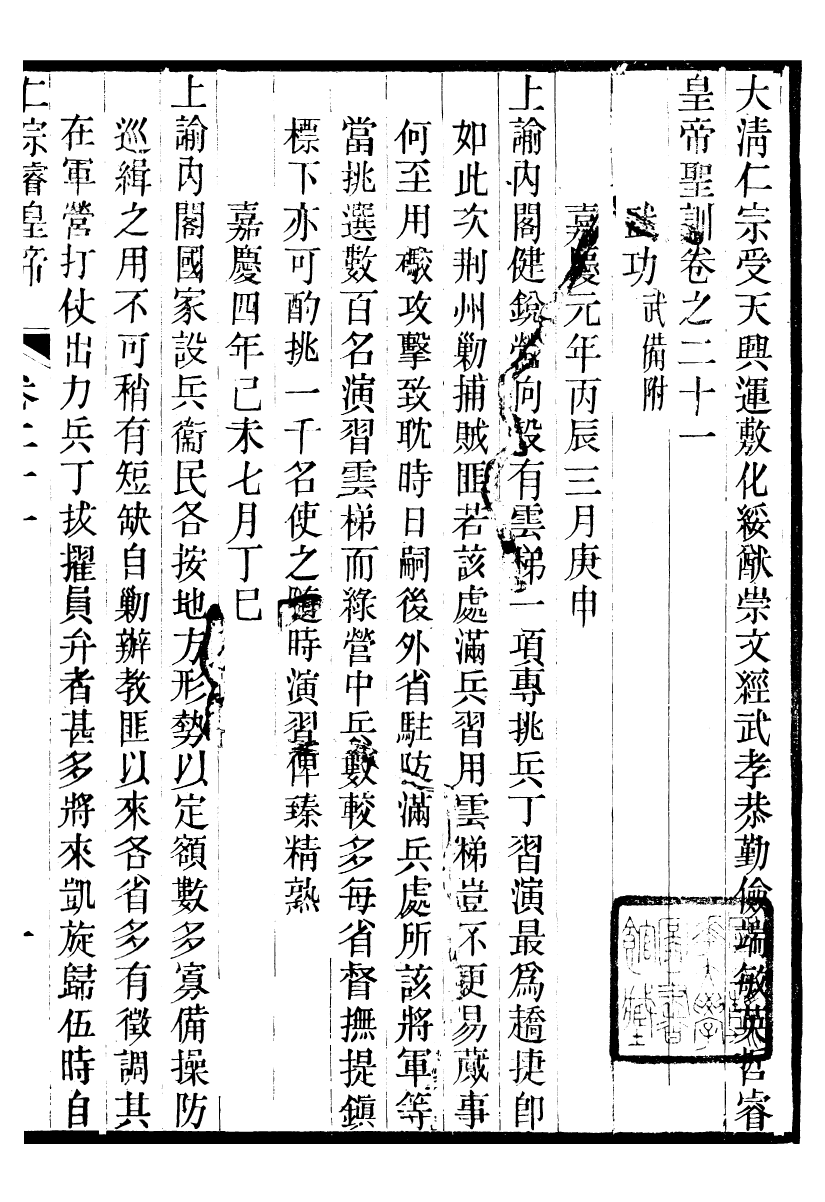 大淸仁宗受天興運敷化綏猷崇文經武孝恭勤儉端敏英哲睿
皇帝聖訓卷之二十一
武功武備附
嘉慶元年丙辰三月庚申
上諭內閣健銳營向設有雲梯一項專挑兵丁習演最爲趫捷卽
如此次荆州勦捕賊匪若該處滿兵習用雲梯豈不更易蕆事
何至用礮攻擊致耽時日嗣後外省駐防滿兵處所該將軍等
當挑選數百名演習雲梯而綠營中兵數較多每省督撫提鎭
標下亦可酌挑一千名使之隨時演習俾臻精熟
嘉慶四年己未七月丁巳
上諭內閣國家設兵衞民各按地方形勢以定額數多寡備操防
巡緝之用不可稍有短缺自勦辦敎匪以來各省多有徵調其
在軍營打仗出力兵丁拔擢員弁者甚多將來凱旋歸伍時自
仁宗睿皇帝 卷二十一 一